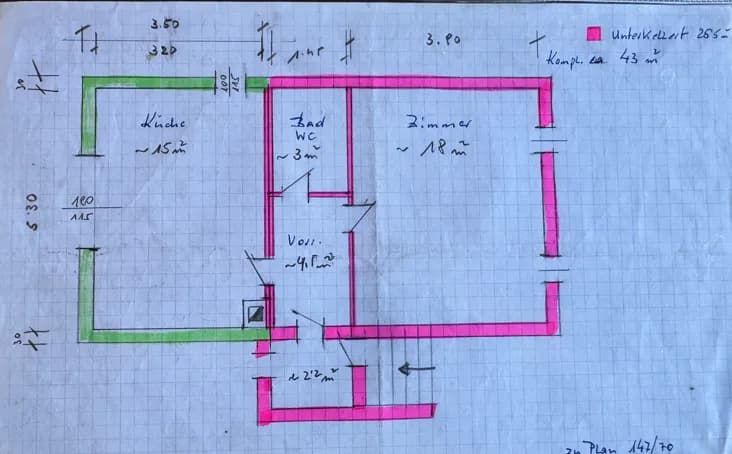 3.50
320
1.45
3.90
Unterkellert
Kompl. ca 43 m²
30
100
115
Küche
~ 15 m²
Bad
WC
~ 3 m²
Zimmer
~ 18 m²
5.30
120
115
Vorr.
~ 4,5 m²
30
~ 2,2 m²
zu Plan 147/70